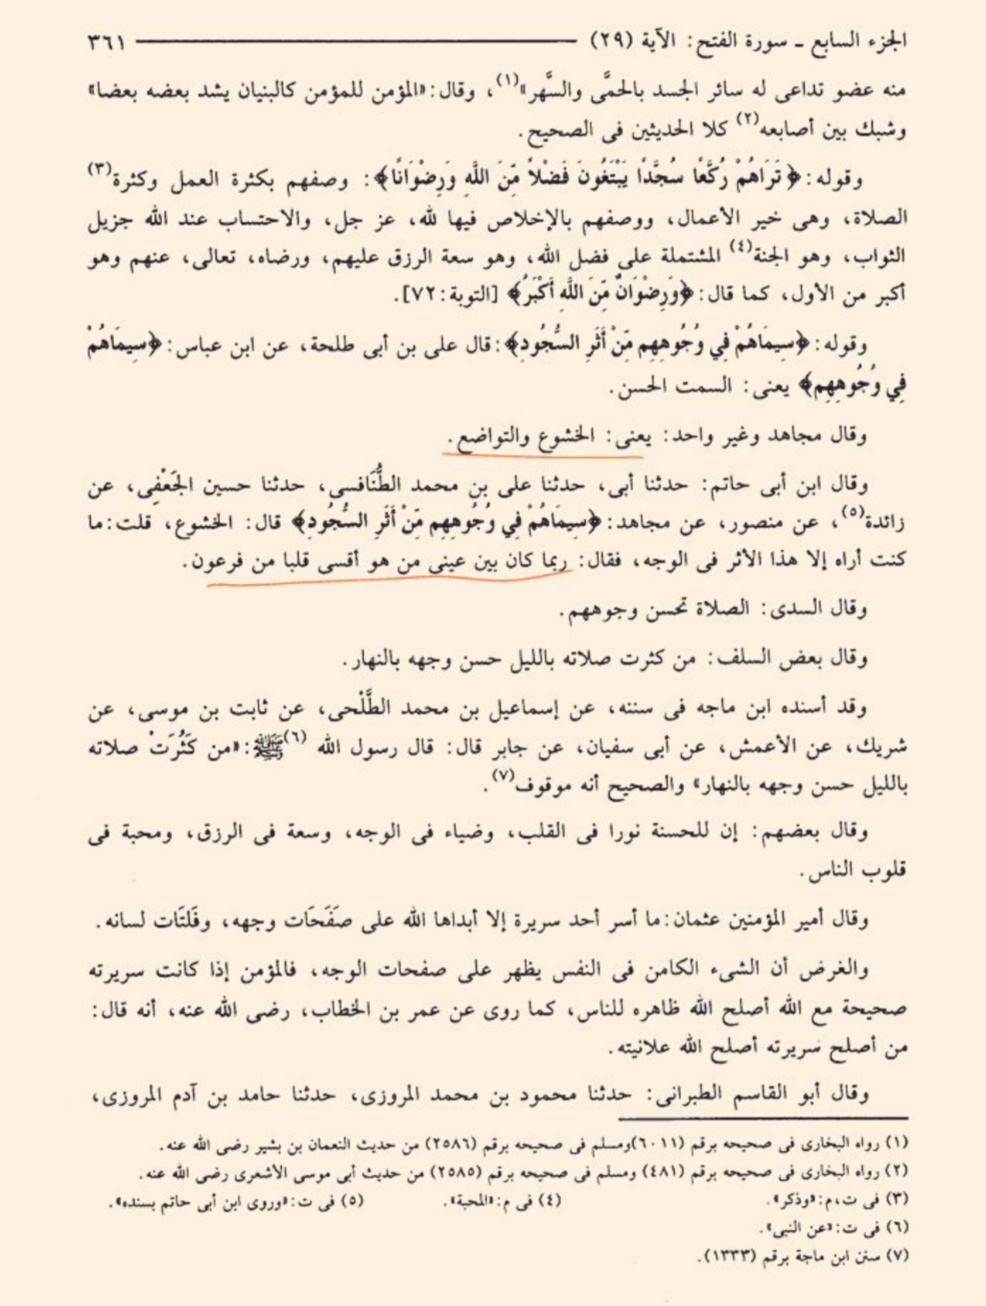 الجزء السابع - سورة الفتح: الآية (٢٩) ٣٦١
منه عضو تداعى له سائر الجسد بالحمَّى والسَّهر»(١)، وقال: «المؤمن للمؤمن كالبنيان يشد بعضه بعضا»
وشبك بين أصابعه(٢) كلا الحديثين فى الصحيح.
وقوله: ﴿تَرَاهُمْ رُكَّعًا سُجَّدًا يَبْتَغُونَ فَضْلاً مِّنَ اللَّهِ وَرِضْوَانًا﴾: وصفهم بكثرة العمل وكثرة(٣)
الصلاة، وهى خير الأعمال، ووصفهم بالإخلاص فيها لله، عز جل، والاحتساب عند الله جزيل
الثواب، وهو الجنة(٤) المشتملة على فضل الله، وهو سعة الرزق عليهم، ورضاه، تعالى، عنهم وهو
أكبر من الأول، كما قال: ﴿وَرِضْوَانٌ مِّنَ اللَّهِ أَكْبَرُ﴾ [التوبة: ٧٢].
وقوله: ﴿سِيمَاهُمْ فِي وُجُوهِهِم مِّنْ أَثَرِ السُّجُودِ﴾: قال على بن أبى طلحة، عن ابن عباس: ﴿سِيمَاهُمْ
فِي وُجُوهِهِم﴾ يعنى: السمت الحسن.
وقال مجاهد وغير واحد: يعنى: الخشوع والتواضع.
وقال ابن أبى حاتم: حدثنا أبى، حدثنا على بن محمد الطَّنَافسى، حدثنا حسين الجَعْفِى، عن
زائدة(٥)، عن منصور، عن مجاهد: ﴿سِيمَاهُمْ فِي وُجُوهِهِم مِّنْ أَثَرِ السُّجُودِ﴾ قال: الخشوع، قلت: ما
كنت أراه إلا هذا الأثر فى الوجه، فقال: ربما كان بين عينى من هو أقسى قلبا من فرعون.
وقال السدى: الصلاة تحسن وجوههم.
وقال بعض السلف: من كثرت صلاته بالليل حسن وجهه بالنهار.
وقد أسنده ابن ماجه فى سننه، عن إسماعيل بن محمد الطَّلْحى، عن ثابت بن موسى، عن
شريك، عن الأعمش، عن أبى سفيان، عن جابر قال: قال رسول الله (٦)ﷺ: «من كَثُرَتْ صلاته
بالليل حسن وجهه بالنهار» والصحيح أنه موقوف(٧).
وقال بعضهم: إن للحسنة نورا فى القلب، وضياء فى الوجه، وسعة فى الرزق، ومحبة فى
قلوب الناس.
وقال أمير المؤمنين عثمان: ما أسر أحد سريرة إلا أبداها الله على صَفَحَات وجهه، وفَلتَات لسانه.
والغرض أن الشىء الكامن فى النفس يظهر على صفحات الوجه، فالمؤمن إذا كانت سريرته
صحيحة مع الله أصلح الله ظاهره للناس، كما روى عن عمر بن الخطاب، رضى الله عنه، أنه قال:
من أصلح سريرته أصلح الله علانيته.
وقال أبو القاسم الطبرانى: حدثنا محمود بن محمد المروزى، حدثنا حامد بن آدم المروزى،
(١) رواه البخارى فى صحيحه برقم (٦٠١١)ومسلم فى صحيحه برقم (٢٥٨٦) من حديث النعمان بن بشير رضى الله عنه.
(٢) رواه البخارى فى صحيحه برقم (٤٨١) ومسلم فى صحيحه برقم (٢٥٨٥) من حديث أبى موسى الأشعرى رضى الله عنه.
(٣) فى ت، م: «وذكر». (٤) فى م: «المحبة». (٥) فى ت: «وروى ابن أبى حاتم بسنده».
(٦) فى ت: «عن النبى».
(٧) سنن ابن ماجة برقم (١٣٣٣).